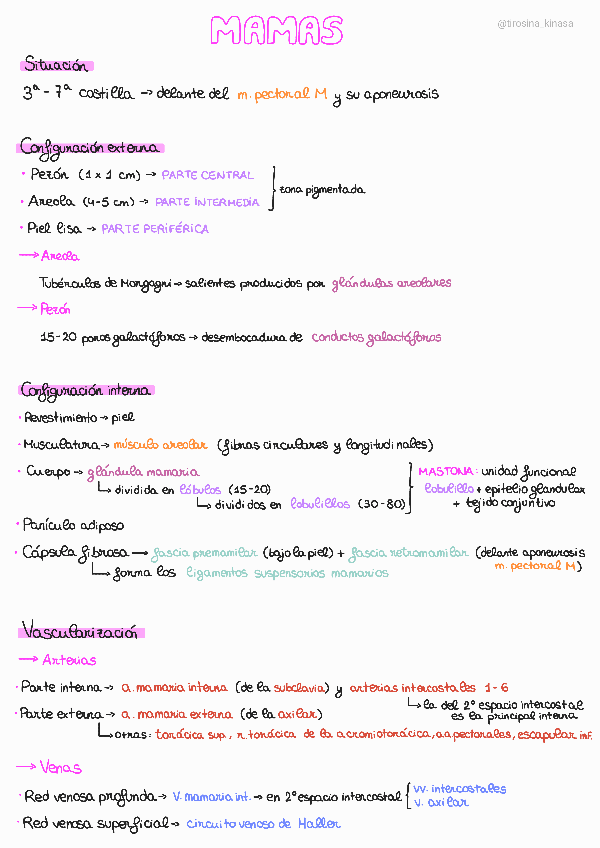 MAMAS
@tirosina_kinasa
Situación
3ª - 7ª costilla → delante del m. pectoral M y su aponeurosis
Configuración externa
· Pezón (1 x 1 cm) → PARTE CENTRAL
· Areola (4-5 cm) → PARTE INTERMEDIA
zona pigmentada
· Piel lisa → PARTE PERIFÉRICA
→ Areola
Tubérculos de Morgagni → salientes producidos por glándulas areolares
→ Pezón
15-20 poros galactóforos → desembocadura de conductos galactóforos
Configuración interna
· Revestimiento → piel
· Musculatura → músculo areolar (fibras circulares y longitudinales)
· Cuerpo → glándula mamaria
↳ dividida en lóbulos (15-20)
↳ divididos en lobulillos (30-80)
MASTONA: unidad funcional
lobulillo + epitelio glandular
+ tejido conjuntivo
· Panículo adiposo
· Cápsula fibrosa → fascia premamilar (bajo la piel) + fascia retromamilar (delante aponeurosis
m. pectoral M)
↳ forma los ligamentos suspensorios mamarios
Vascularización
→ Arterias
· Parte interna → a. mamaria interna (de la subclavia) y arterias intercostales 1-6
↳ la del 2º espacio intercostal
es la principal interna
· Parte externa → a. mamaria externa (de la axilar)
↳ otras: torácica sup., r. torácica de la acromiotorácica, aa pectorales, escapular inf.
→ Venas
· Red venosa profunda → v. mamaria int. → en 2º espacio intercostal
vv. intercostales
v. axilar
· Red venosa superficial → circuito venoso de Haller